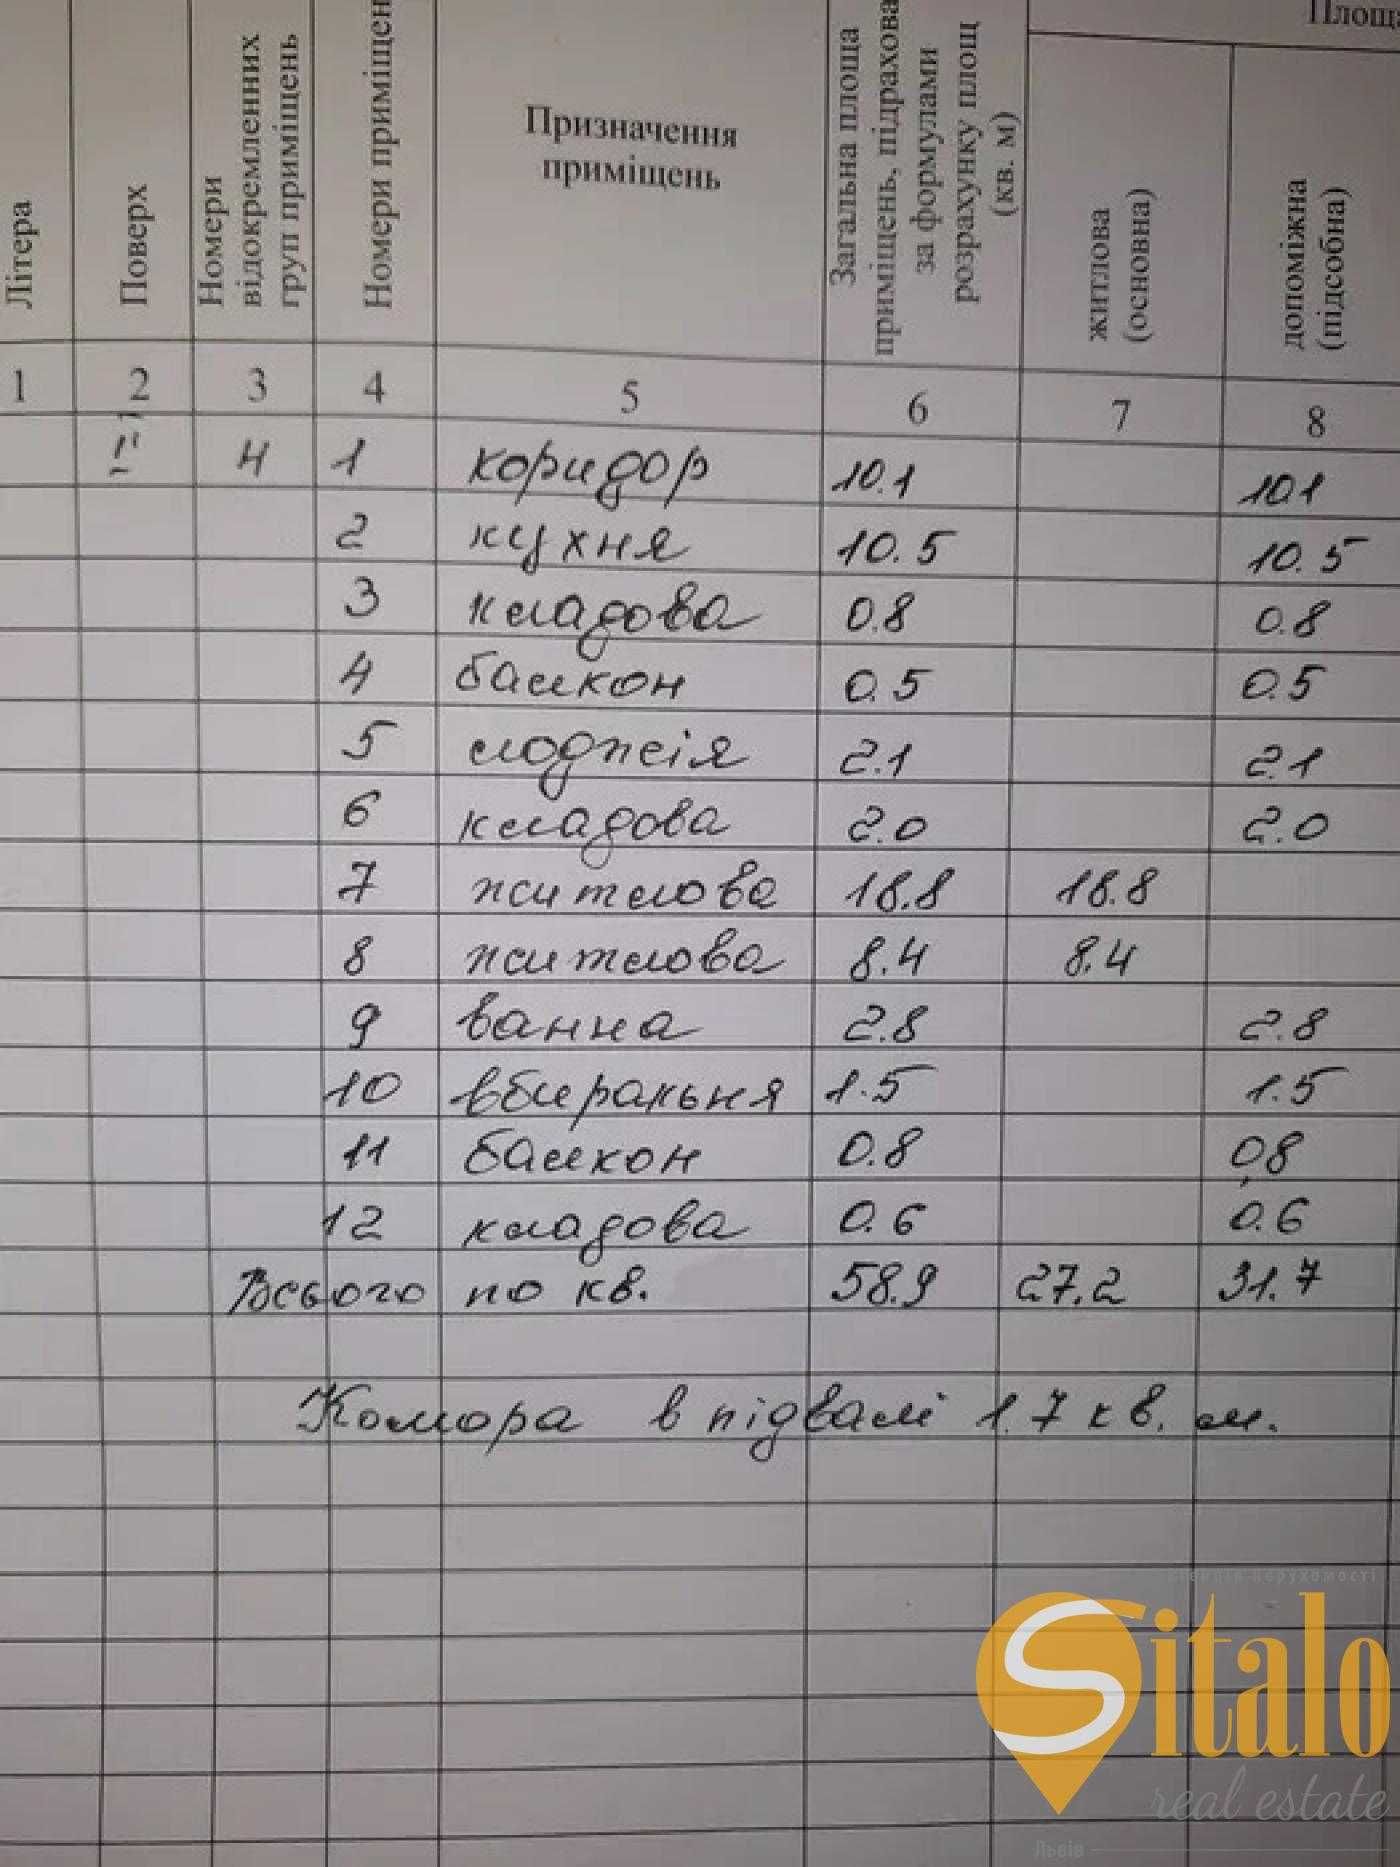 Площа
Літера
Поверх
Номери
відокремленних
груп приміщень
Номери приміщен
Призначення
приміщень
Загальна площа
приміщень, підрахова
за формулами
розрахунку площ
(кв. м)
житлова
(основна)
допоміжна
(підсобна)
1 2 3 4 5 6 7 8
4 1 коридор 10.1 10.1
2 кухня 10.5 10.5
3 кладова 0.8 0.8
4 балкон 0.5 0.5
5 лоджія 2.1 2.1
6 кладова 2.0 2.0
7 житлова 18.8 18.8
8 житлова 8.4 8.4
9 ванна 2.8 2.8
10 вбиральня 1.5 1.5
11 балкон 0.8 0.8
12 кладова 0.6 0.6
Всього по кв. 58.9 27.2 31.7
Комора в підвалі 1.7 кв. м.
нерухомості
Sitalo
real estate
Львів